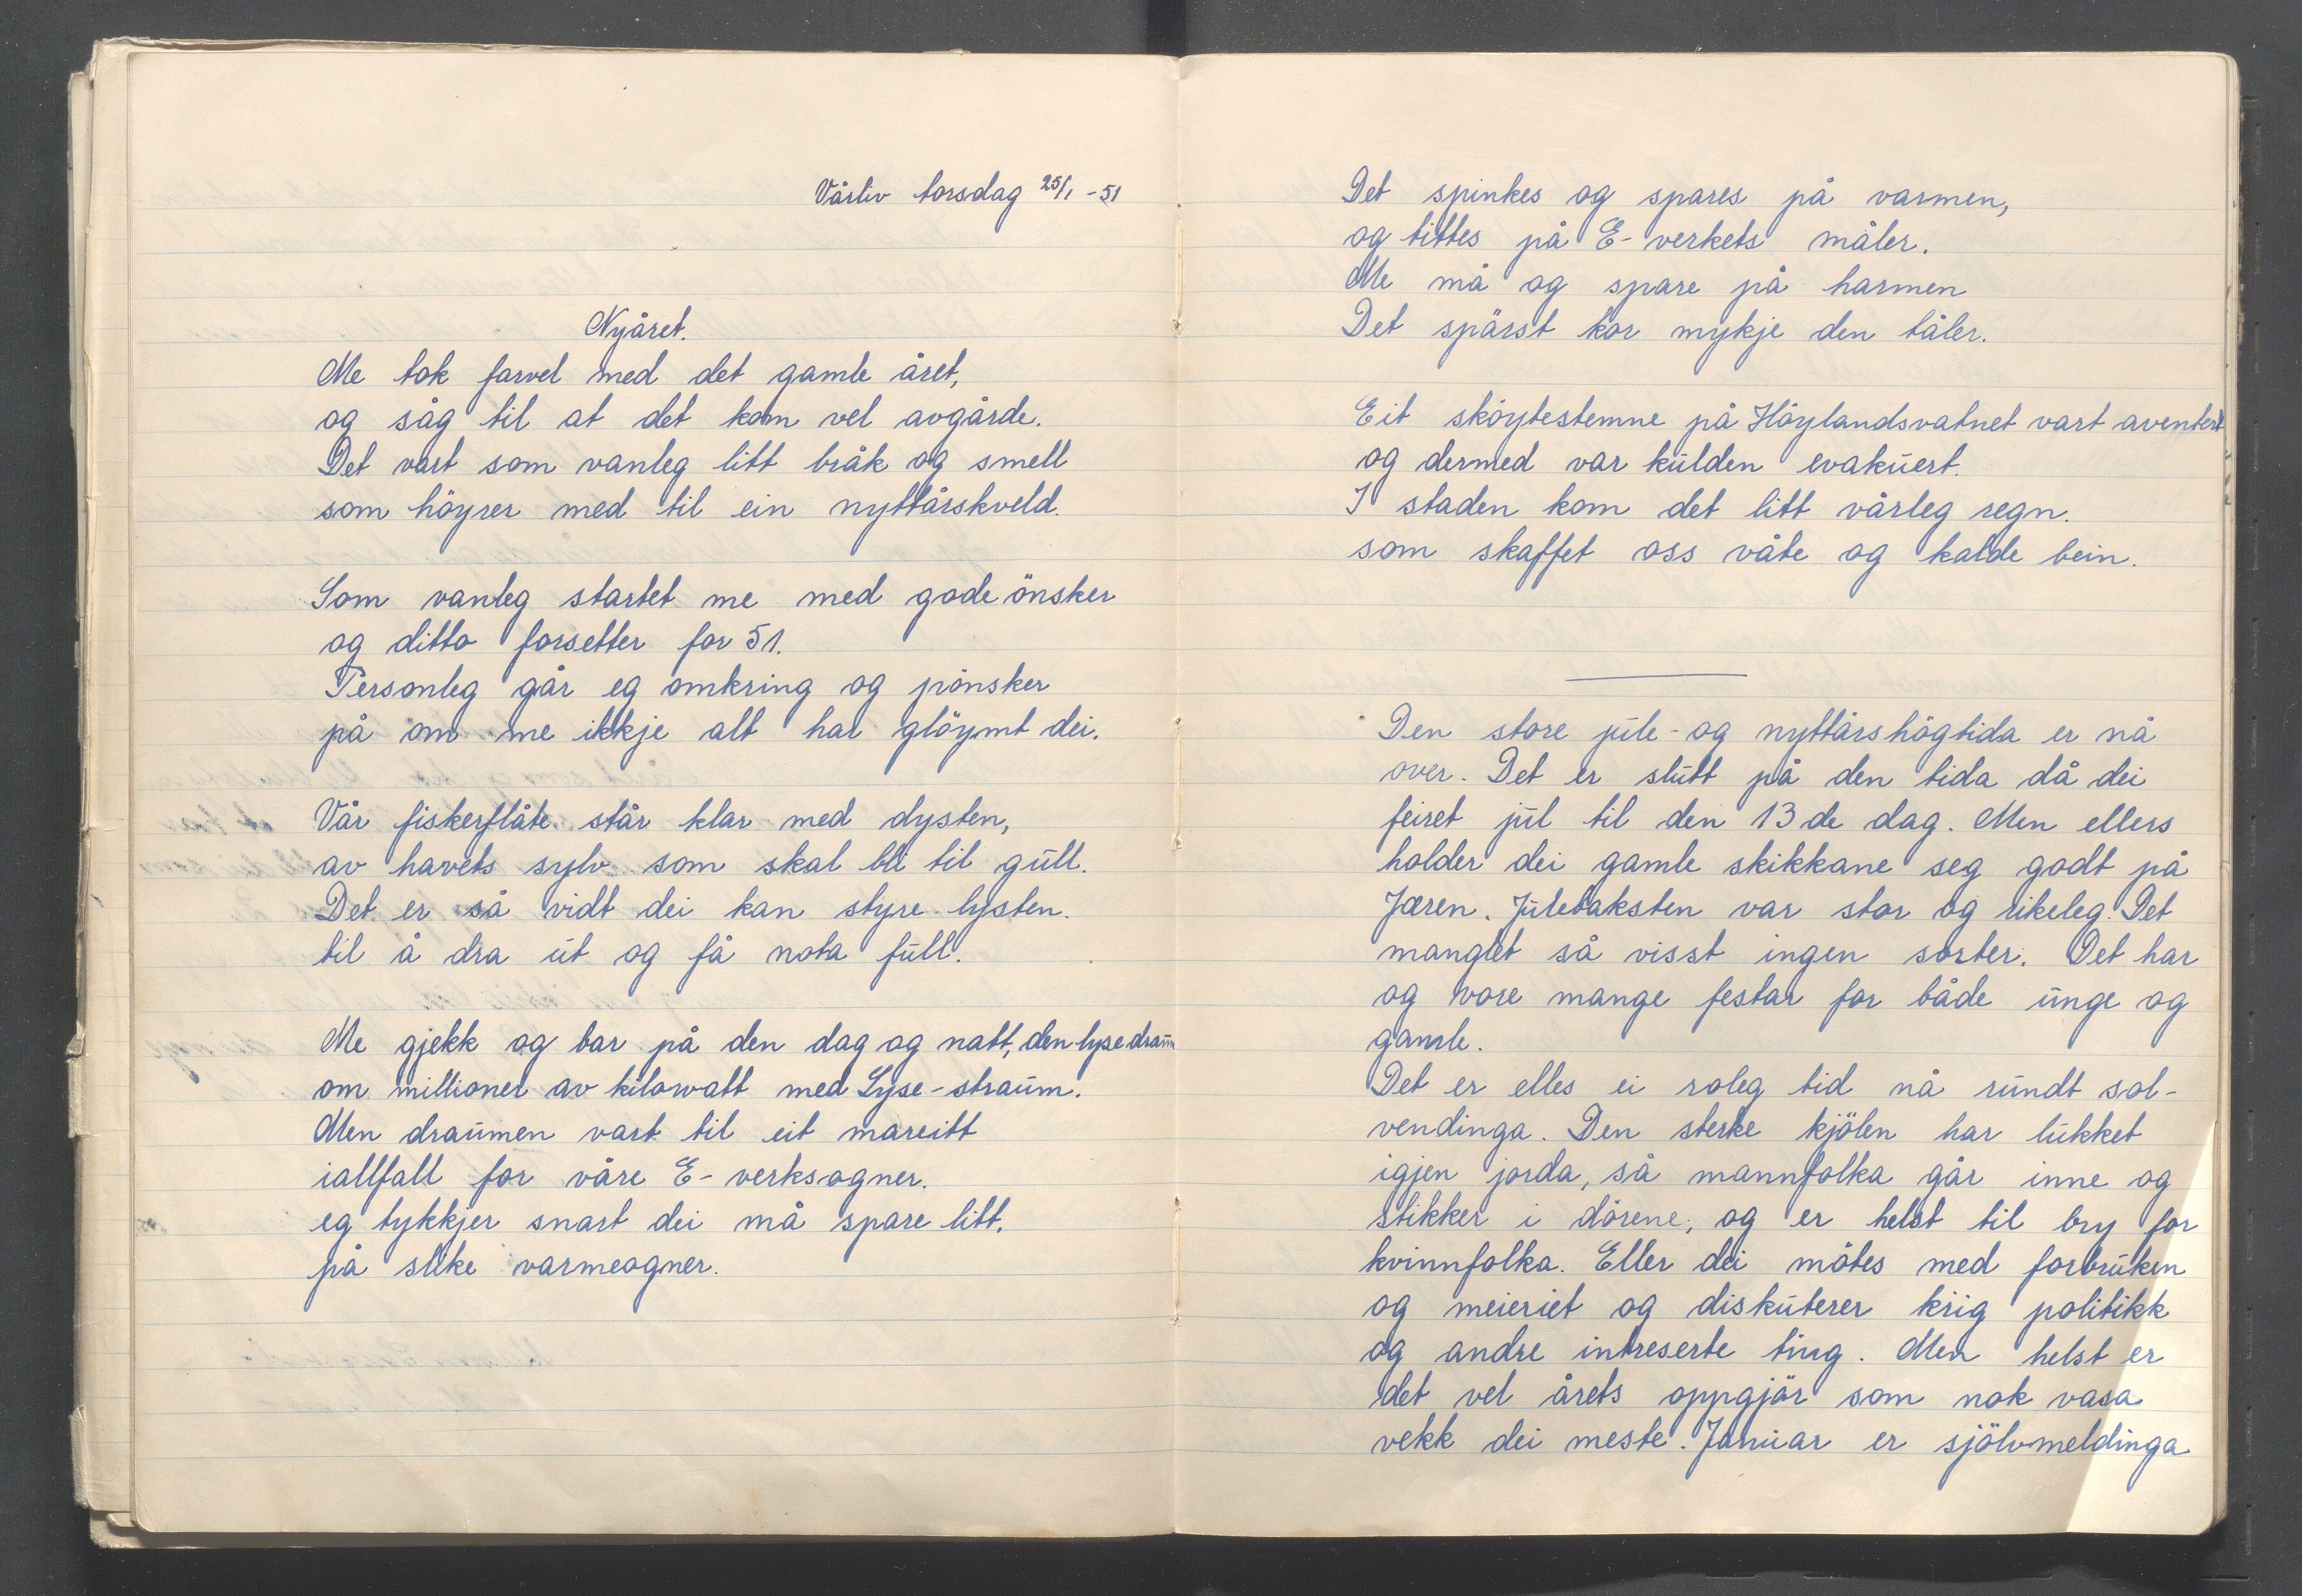 Vårliv torsdag 25/1 -51
Nyåret.
Me tok farvel med det gamle året,
og såg til at det kom vel avgårde.
Det vart som vanleg litt bråk og smell
som höyrer med til ein nyttårskveld.
Som vanleg startet me med gode önsker
og ditto forsetter for 51.
Personleg går eg omkring og pönsker
på om me ikkje alt har glöymt dei.
Vår fiskerflåte står klar med dysten,
av havets sylv som skal bli til gull.
Det er så vidt dei kan styre lysten.
til å dra ut og få nota full.
Me gjekk og bar på den dag og natt, den lyse draum
om millioner av kilowatt med Lyse-straum.
Men draumen vart til eit mareitt
iallfall for våre E-verksogner.
eg tykkjer snart dei må spare litt.
på slike varmeogner.
Det spinkes og spares på varmen,
og tittes på E-verkets måler.
Me må og spare på harmen
Det spärst kor mykje den tåler.
Eit sköytestemne på Höylandsvatnet vart aventert
og dermed var kulden evakuert.
I staden kom det litt vårleg regn.
som skaffet oss våte og kalde bein.
Den store jule- og nyttårshögtida er nå
over. Det er slutt på den tida då dei
feiret jul til den 13 de dag. Men ellers
holder dei gamle skikkane seg godt på
Jæren. Julebaksten var stor og rikeleg. Det
manglet så visst ingen sorter. Det har
og vore mange festar for både unge og
gamle.
Det er elles ei roleg tid nå rundt sol-
vendinga. Den sterke kjölen har lukket
igjen jorda, så mannfolka går inne og
stikker i dörene, og er helst til bry for
kvinnfolka. Eller dei mötes med forbruken
og meieriet og diskuterer krig politikk
og andre intreserte ting. Men helst er
det vel årets oppgjär som nok vasa
vekk dei meste. Januar er sjölvmeldinga